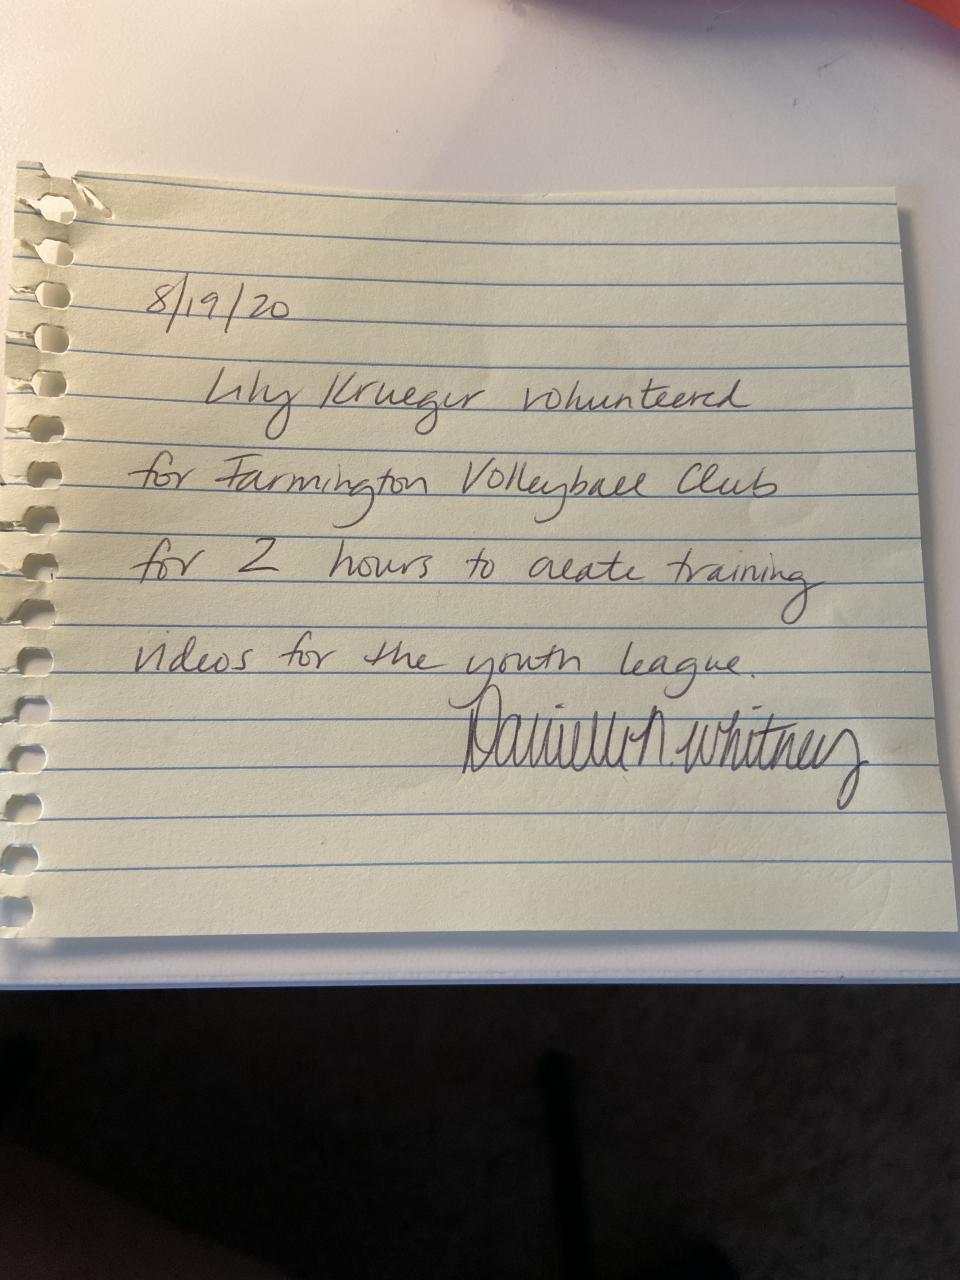 8/19/20
Lily Krueger volunteered
for Farmington Volleyball Club
for 2 hours to create training
videos for the youth league.
Danielle N. Whitney